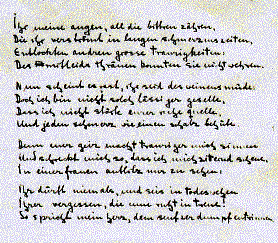 Ihr meine augen, all die bittren zähren,
Die ihr verströmt in langen schmerzenszeiten,
Entlockten andren grosse Traurigkeiten:
Des Mitleids thränen konnten Sie nicht wehren.
Nun scheint es fast, ihr seid des weinens müde:
Doch ich bin nicht solch lässiger geselle,
Dass ich nicht einer ruhe quelle,
Und jeden schmerz wie einen schatz behüte.
Denn euer geiz macht trauriger mich sinnen
Und schreckt mich so, dass ich mich zitternd scheue,
In einer frauen antlitz nur zu sehen:
Ihr dürft niemals, und seis in
Ihrer vergessen, die nun ruht in
So spricht mein herz, dem seufzer dumpf entrinnen